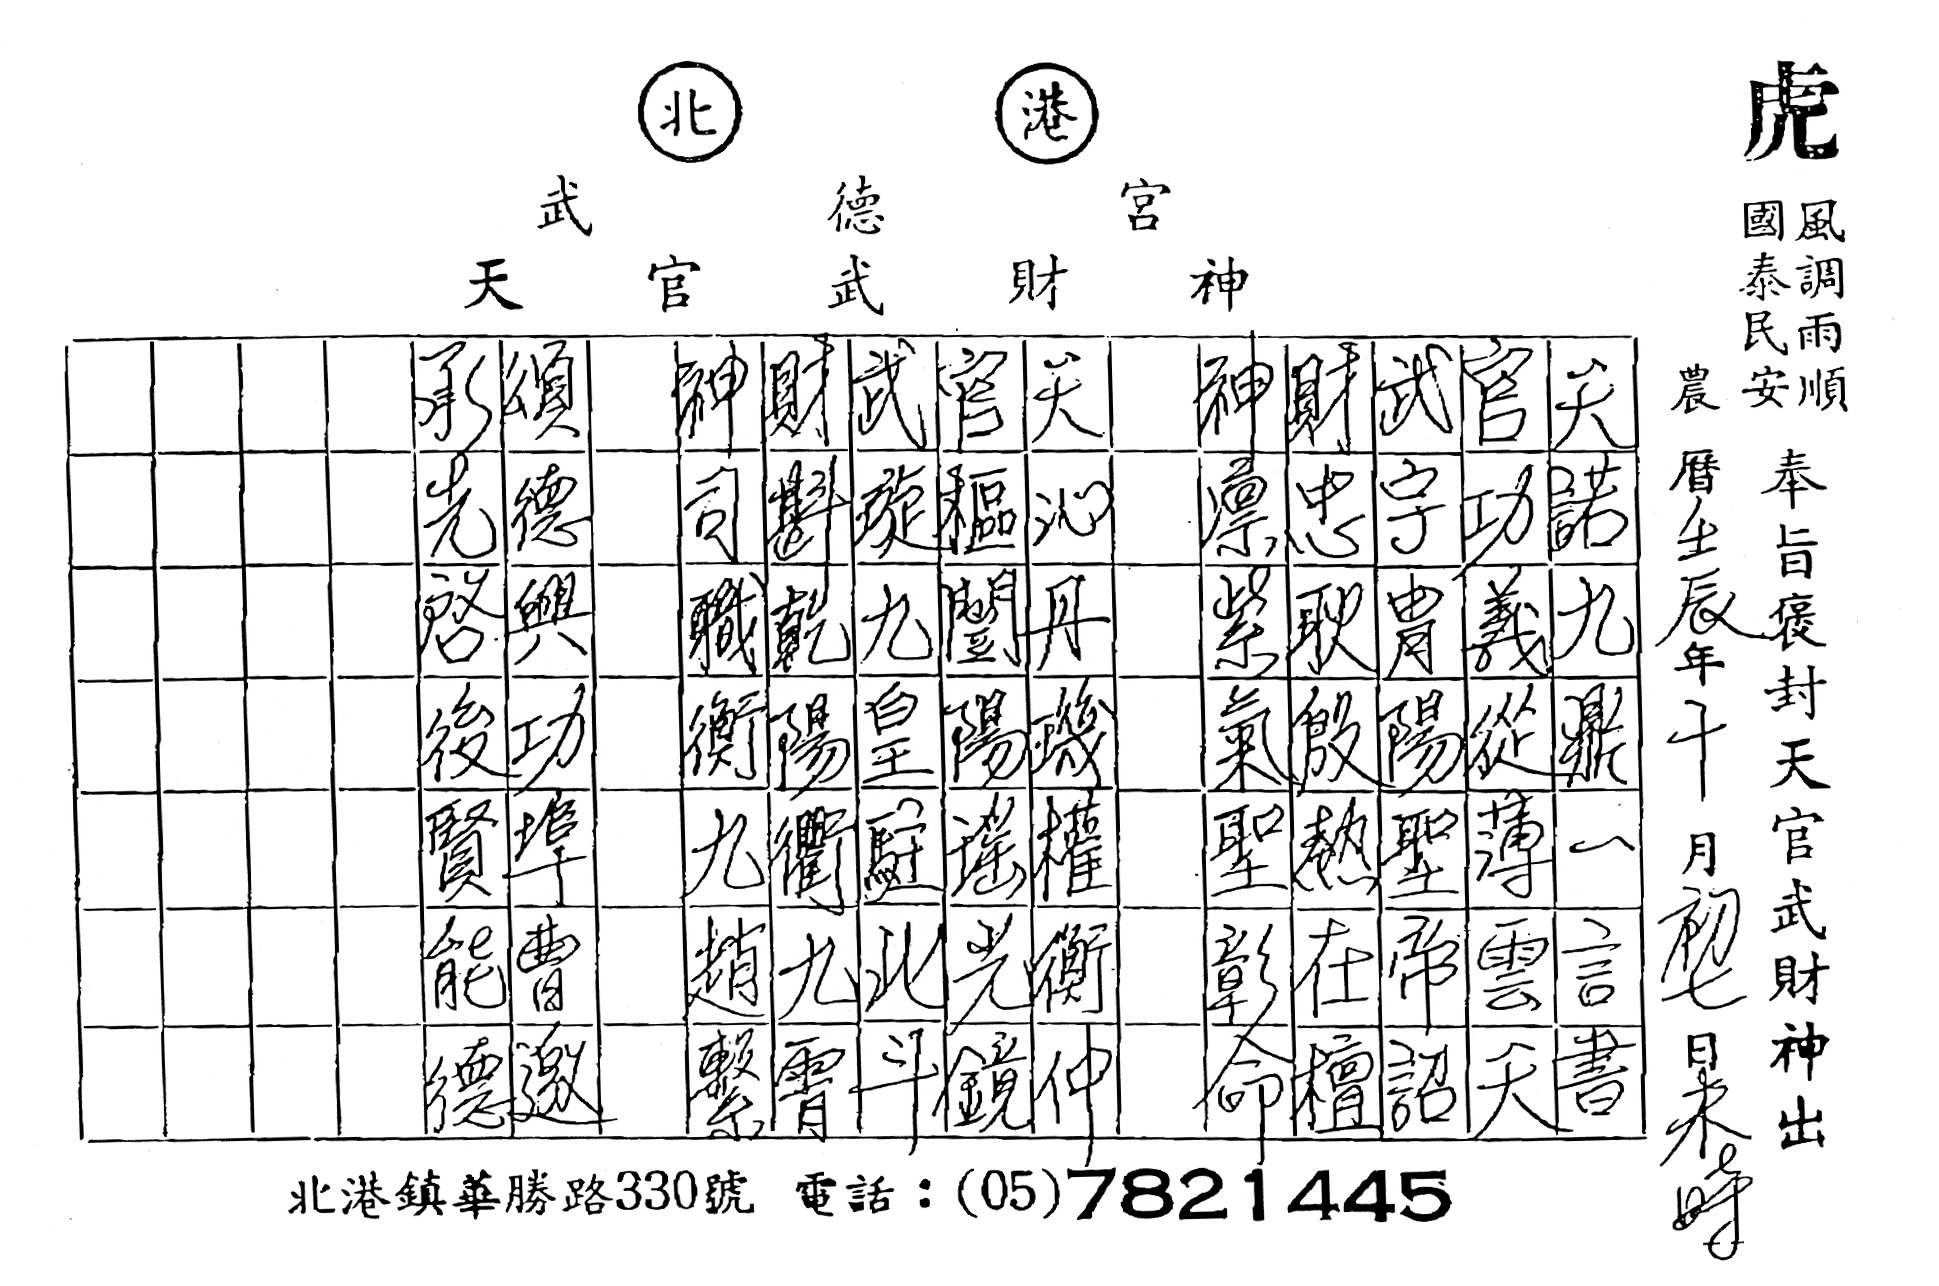 北港
武德宮
天官武財神
虎
風調雨順
國泰民安
奉旨褒封天官武財神出
農曆壬辰年十月初七日未時
天諾九鼎一言書
官功義從薄雲天
武字胄陽聖帝詔
財忠耿殷熱在檀
神凛紫氣聖彰命
天沁丹璣權衡仲
官樞闓陽瑤光鏡
武旋九皇駐北斗
財斟乾陽衢九霄
神司職衡九趙繫
頌德興功埠曹邀
承先啓後賢能德
北港鎮華勝路330號 電話：(05)7821445